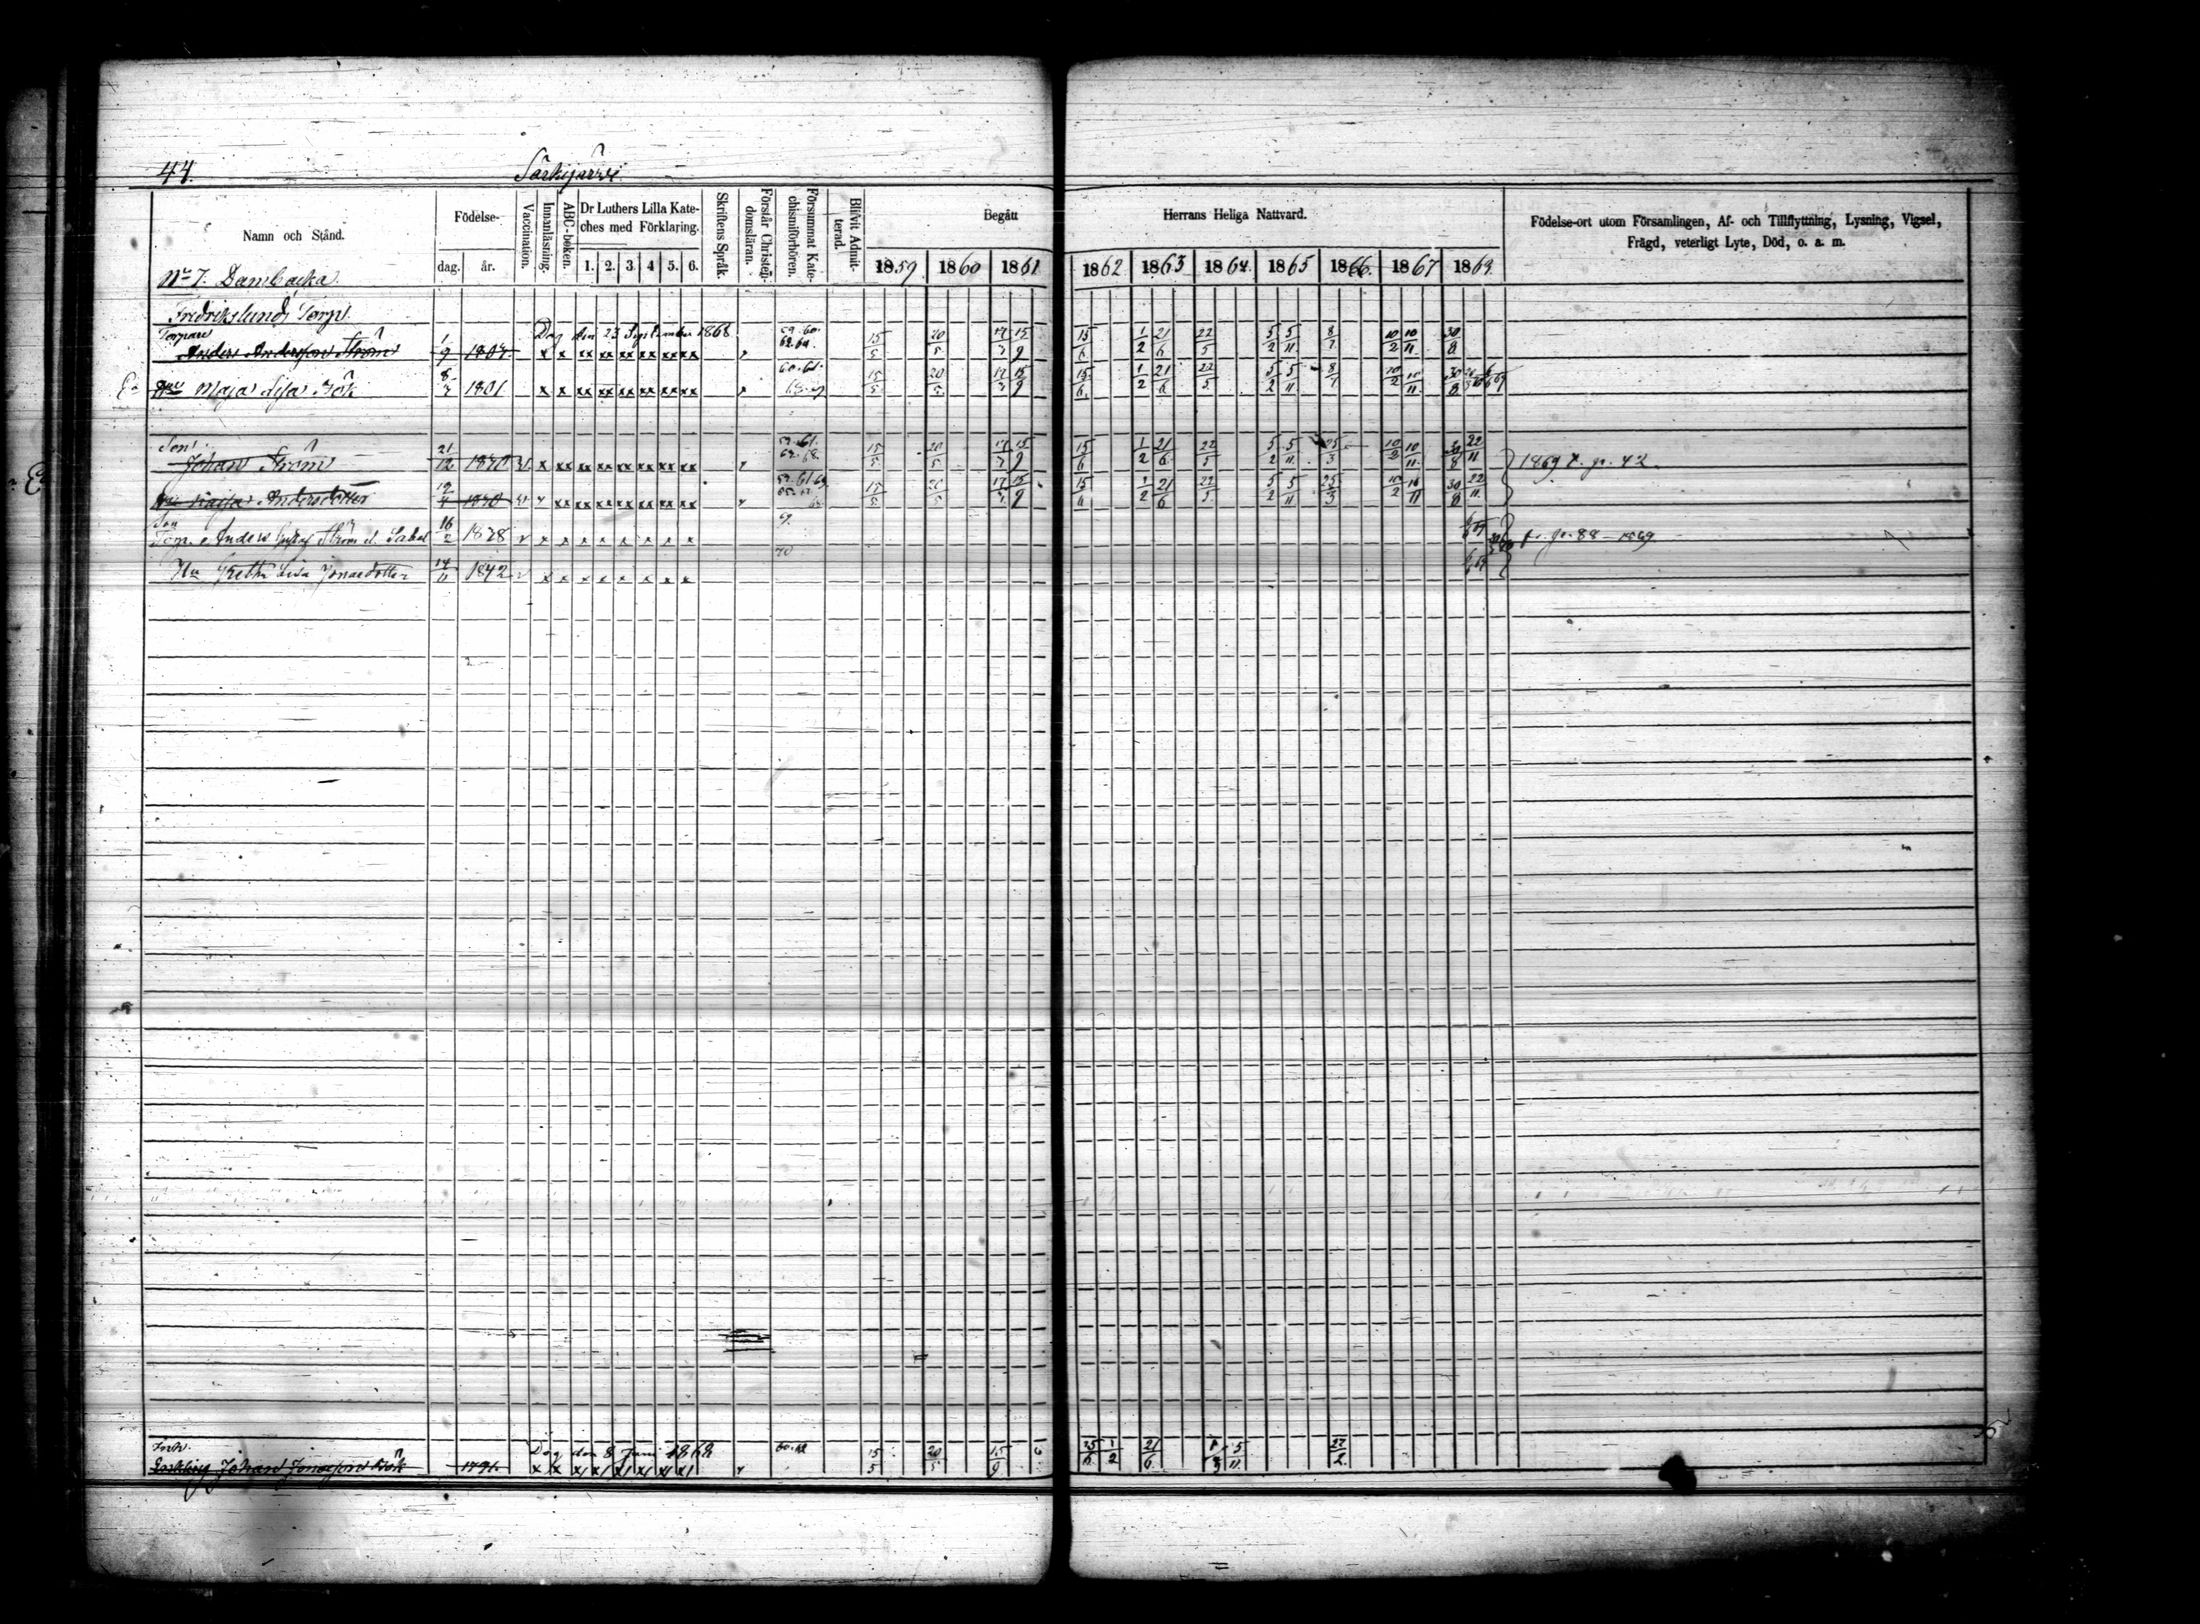 44. Särkijärvi
Namn och Stånd. Födelse- dag. år. Vaccination. Innanläsning. ABC-boken. Dr Luthers Lilla Kateches med Förklaring. 1. 2. 3. 4. 5. 6. Skriftens Språk. Förstår Christendomsläran. Försummat Katechismiförhören. Blifvit Admitterad. Begått Herrans Heliga Nattvard. Födelse-ort utom Församlingen, Af- och Tillflyttning, Lysning, Vigsel, Frägd, veterligt Lyte, Död, o. a. m.
1859 1860 1861 1862 1863 1864 1865 1866 1867 1868
No 7. Dambacka
Fridrikslunds Torp.
Torpare Död den 23 September 1868 59. 60.
Anders Andersson Ström 1/9 1807 x x xx xx xx xx xx xx 15/5 20/5 17/3 15/9 15/6 1/2 21/6 22/5 5/2 5/11 8/1 10/2 10/11 30/8
Ea Hu Maja Lisa Bök 1801 x x xx xx xx xx xx xx 15/5 20/5 17/3 15/9 15/6 1/2 21/6 22/5 5/2 5/11 8/1 10/2 10/11 30/8
Son
Johan Ström 21/12 1840 x xx xx xx xx xx xx xx 15/5 20/5 17/3 15/9 15/6 1/2 21/6 22/5 5/2 5/11 25/3 10/2 10/11 30/8 22/11 1869 t. p. 42.
Hu Kajsa Andersdotter 1840 xx xx xx xx xx xx xx 15/5 20/5 17/3 15/9 15/6 1/2 21/6 22/5 5/2 5/11 25/3 10/2 10/11 30/8 22/11
Son
Torp. Anders Gustaf Ström 16/2 1838 x x x x x x x x 69. fr. p. 88 - 1869
Hu Greta Lisa Jonasdotter 14/11 1842 x x x x x x x x 70
Död den 8 Juni 1868
Johan Jonasson Bök 1791. x x x x x x x x 15/5 20/5 15/9 1/2 21/6 5/11 27/2